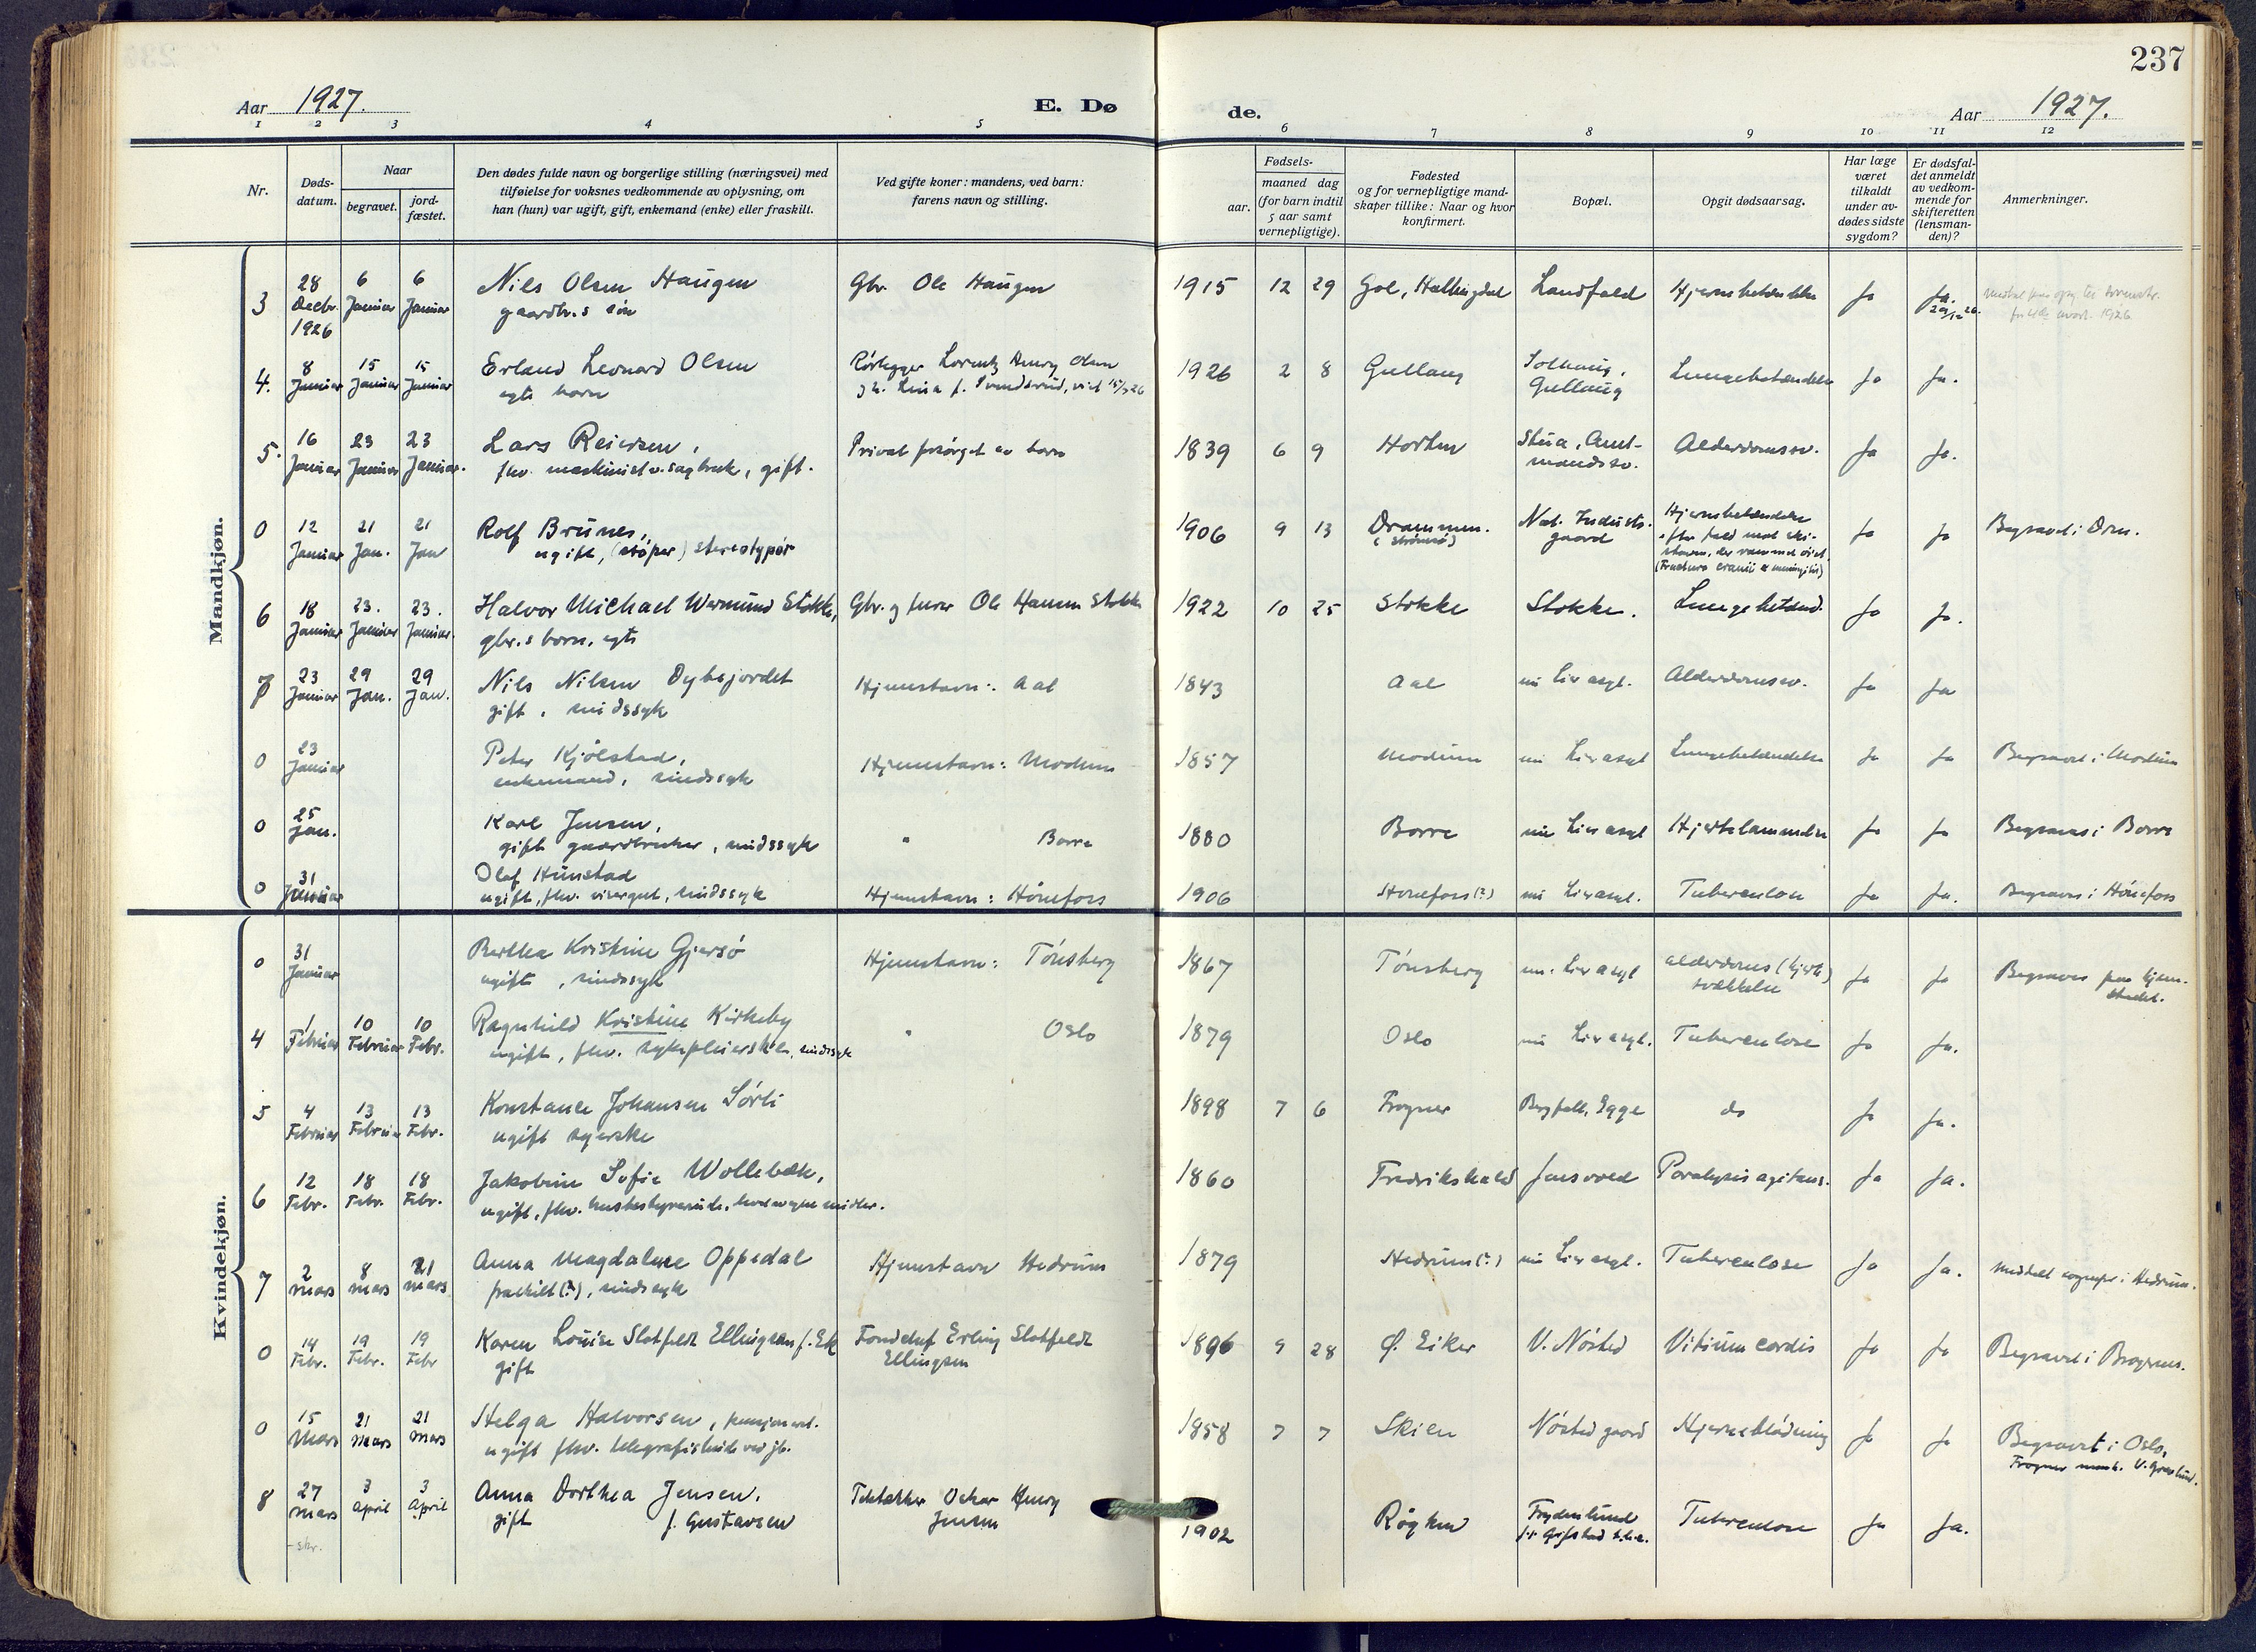 237
Aar 1927.
E. Dø de.
Aar 1927.
1 2 3 4 5 6 7 8 9 10 11 12
Nr.
Døds-
datum.
Naar
begravet.
jord-
fæstet.
Den dødes fulde navn og borgerlige stilling (næringsvei) med
tilføielse for voksnes vedkommende av oplysning, om
han (hun) var ugift, gift, enkemand (enke) eller fraskilt.
Ved gifte koner: mandens, ved barn:
farens navn og stilling.
Fødsels-
aar.
maaned dag
(for barn indtil
5 aar samt
vernepligtige).
Fødested
og for vernepligtige mand-
skaper tillike: Naar og hvor
konfirmert.
Bopæl.
Opgit dødsaarsag.
Har læge
været
tilkaldt
under av-
dødes sidste
sygdom?
Er dødsfal-
det anmeldt
av vedkom-
mende for
skifteretten
(lensman-
den)?
Anmerkninger.
Mandkjøn.
3 28 Decbr. 1926 6 Januar 6 Januar Nils Olsen Haugen Gbr. Ole Haugen 1915 12 29 Gol, Hallingdal Landfald Hjernebetændelse Ja Ja. 29/12 26.
gaardbr.s søn
4. 8 Januar 15 Januar 15 Januar Erland Leonard Olsen Rørlegger Lorentz Henry Olsen 1926 2 8 Gullaug Solhaug, Gullaug Lungebetændelse Ja Ja.
egte barn
5. 16 Januar 23 Januar 23 Januar. Lars Reiersen, Privat forsørget av barn 1839 6 9 Horten Stua, Amt-mandsv. Alderdomssv. Ja Ja.
fhv. maskinist v. sagbruk, gift.
0 12 Januar 21 Jan. 21 Jan Rolf Brunes, 1906 9 13 Drammen. (Strømsø) Næt. Industr. gaard Hjernebetændelse Ja Ja Begravet i Drm.
ugift, (støper) stereotypør
efter fald med ski-
(Fractura cranii & meningitis)
6 18 Januar 23. Januar 23. Januar. Halvor Michael Wermund Stokke, Gbr. og furer Ole Hansen Stokke 1922 10 25 Stokke Stokke. Lungebetænd. Ja Ja.
gbr.s barn, egte
7 23 Januar 29 Jan. 29 Jan. Nils Nilsen Dybsjordet Hjemstavn: Aal 1843 Aal nu Lier asyl. Alderdomssv. Ja Ja
gift, sindssyk
0 23 Januar Peter Kjølstad, Hjemstavn: Modum 1857 Modum nu Lier asyl Lungebetændelse Ja Ja Begravet i Modum
enkemand, sindssyk
0 25 Jan. Karl Jensen, " Borre 1880 Borre nu Lier asyl Hjertelammelse Ja Ja Begraves i Borre
gift gaardbruker, sindssyk
0 31 Januar Olaf Hunstad Hjemstavn: Hønefoss 1906 Hønefoss (?) nu Lier asyl. Tuberculose Ja Ja. Begraves i Hønefoss
ugift, fhv. visergut, sindssyk
Kvindekjøn.
0 31 Januar Berthea Kristine Gjersø Hjemstavn: Tønsberg 1867 Tønsberg nu Lier asyl alderdoms (hjerte) svækkelse Ja Ja Begraves paa hjem-stedet.
ugift, sindssyk
4 1 Februar 10 Februar 10 Febr. Ragnhild Kristine Kirkeby " Oslo 1879 Oslo nu Lier asyl. Tuberculose Ja Ja.
ugift, fhv. sykepleierske, sindssyk
5 4 Februar 13 Februar 13 Febr. Konstance Johansen Sørli 1898 7 6 Frogner Bergfall, Egge do Ja Ja.
ugift syerske
6 12 Febr. 18 Febr. 18 Febr. Jakobine Sofie Wollebæk, 1860 Fredrikshald Jensvold Paralysis agitans. Ja Ja.
ugift, fhv. husbestyrerinde, levet av egne midler.
7 2 mars 8 mars 21 mars Anna Magdalene Oppedal Hjemstavn Hedrum 1879 Hedrum (?) nu Lier asyl. Tuberculose Ja Ja. Meddelt sognepr. i Hedrum.
fraskilt (?), sindssyk
0 14 Febr. 19 Febr. 19 Febr Karen Louise Slotfeldt Ellingsen f. Ek Erling Slotfeldt Ellingsen 1896 9 28 Ø. Eiker V. Nøsted Vitium cordis Ja Ja Begravet i Bragernes.
gift
0 15 Mars 21 Mars 21 mars Helga Halvorsen, pensjonert. 1858 7 7 Skien Nøsted gaard Hjerneblødning Ja Ja Begravet i Oslo,
ugift fhv. telegrafistinde ved jb.
8 27 mars 3 April 3 April Anna Dorthea Jensen, Oskar Henry Jensen 1902 Røyken Frydenlund Tuberculose Ja Ja.
gift f. Gustavsen